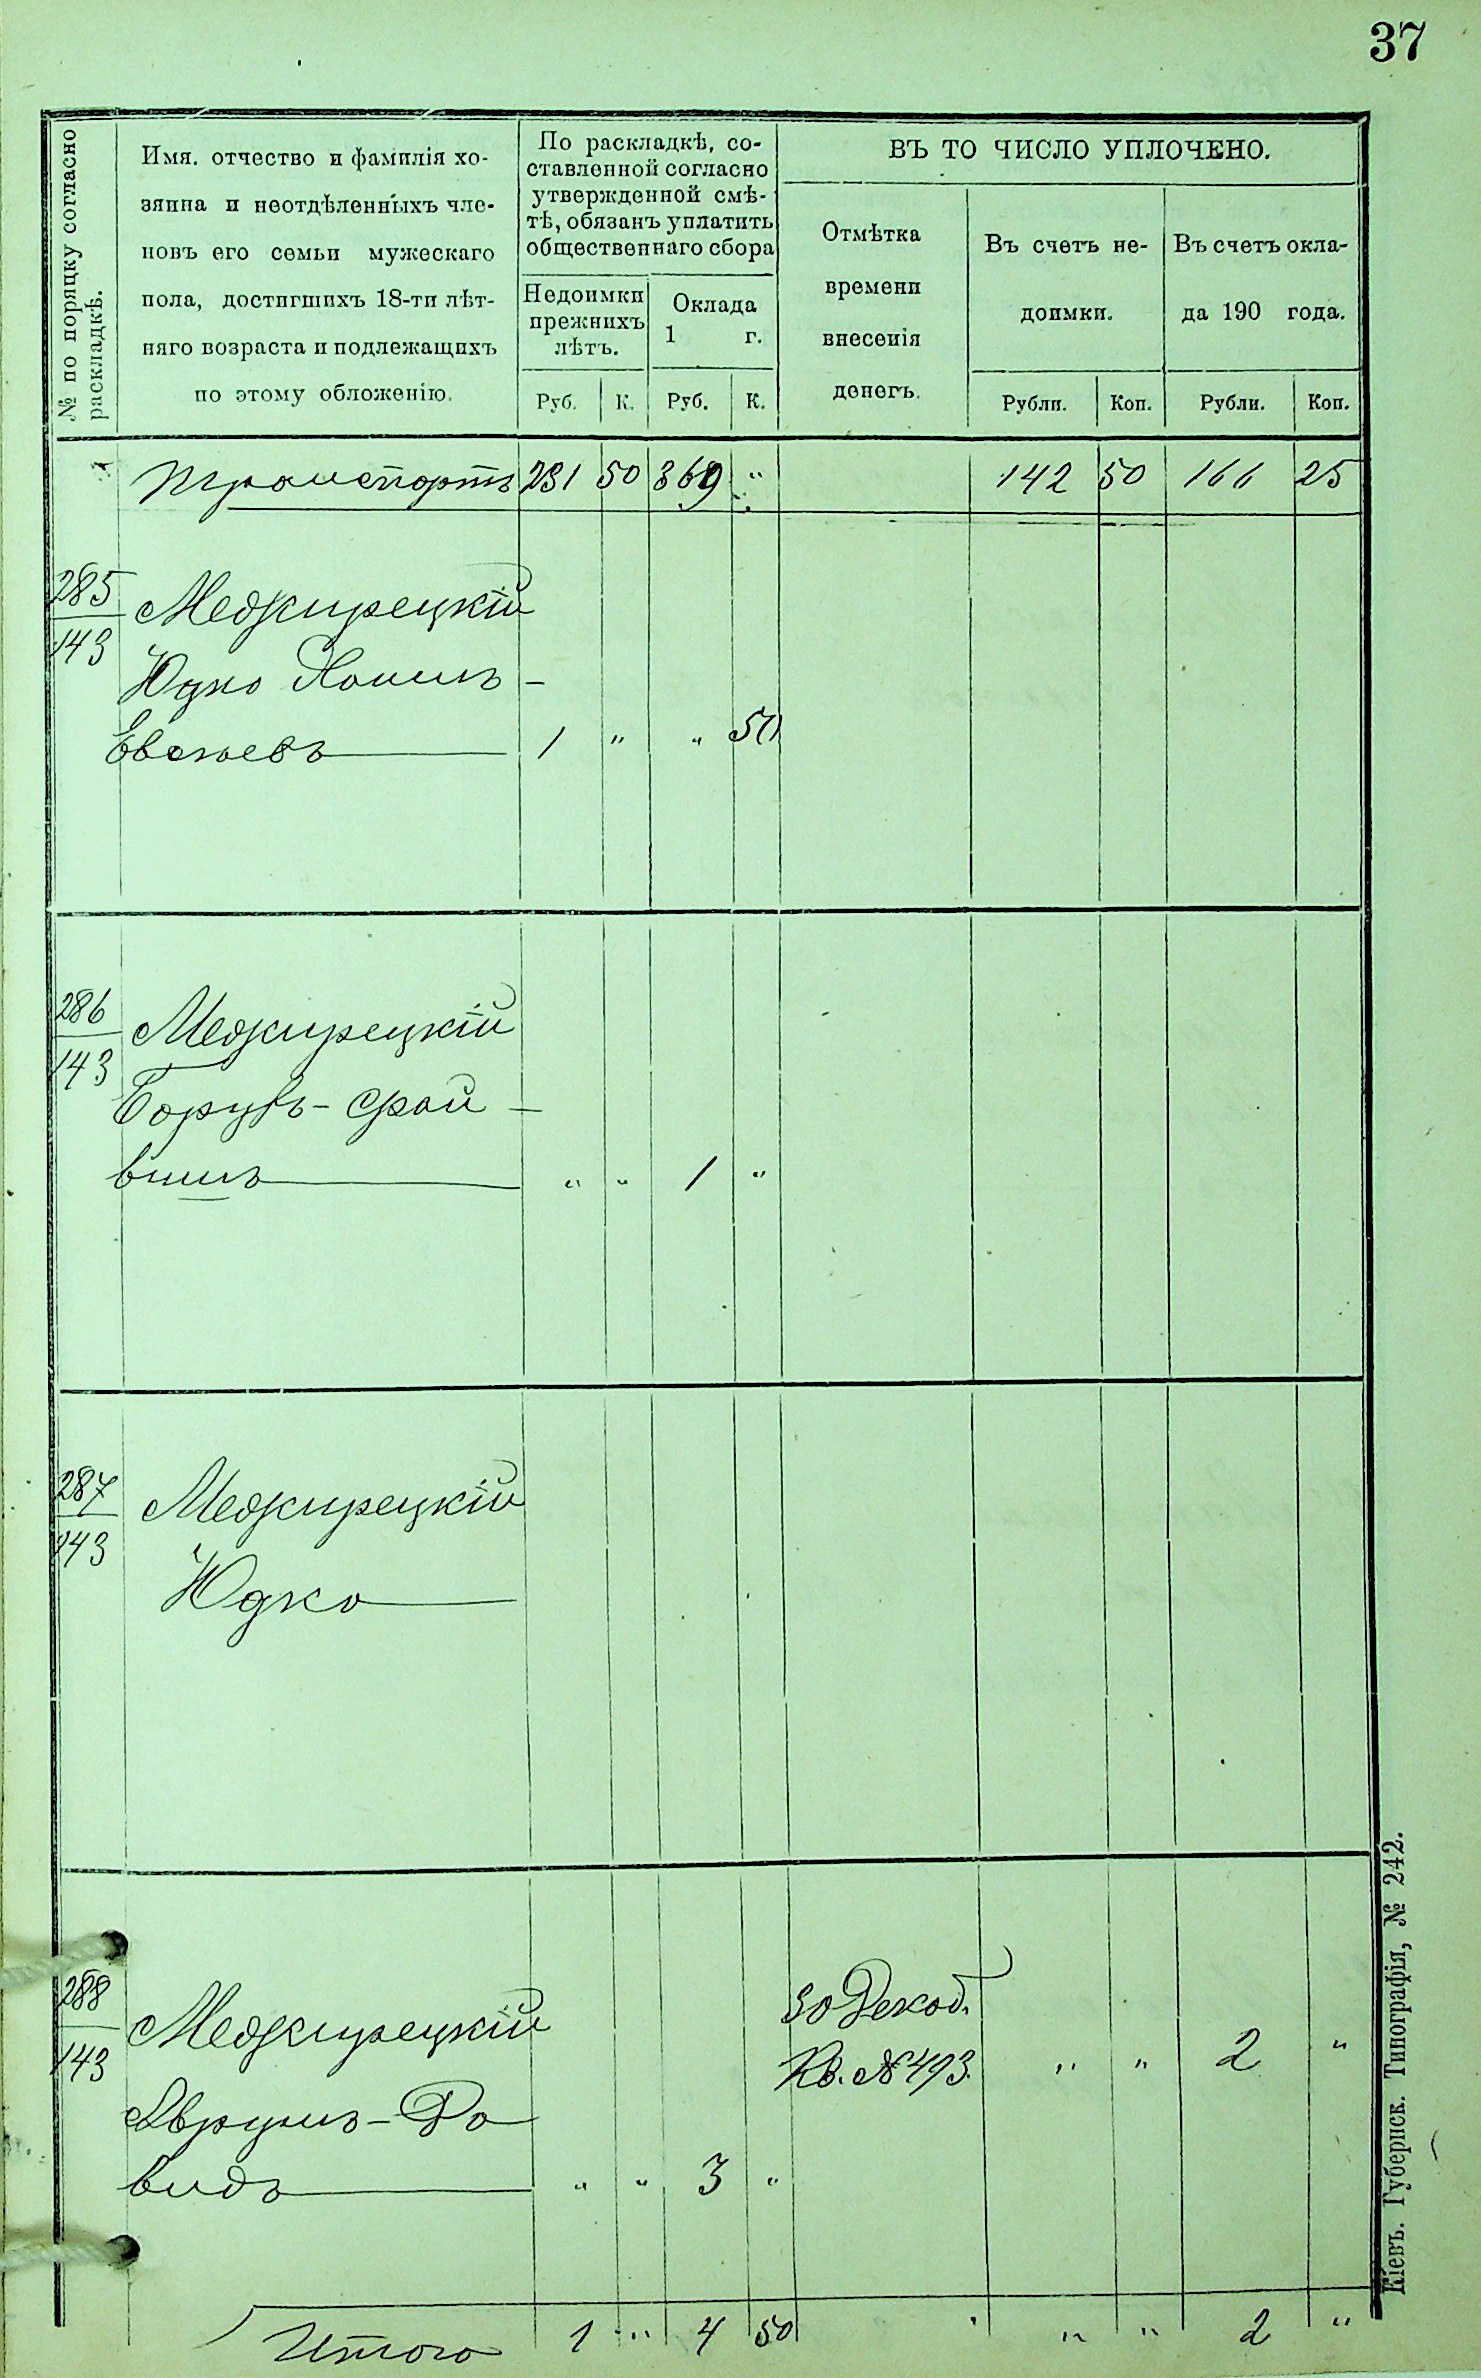 37
№ по порядку согласно
раскладкѣ.
Имя. отчество и фамилія хо-
зяина и неотдѣленныхъ чле-
новъ его семьи мужескаго
пола, достигшихъ 18-ти лѣт-
няго возраста и подлежащихъ
по этому обложенію.
По раскладкѣ, со-
ставленной согласно
утвержденной смѣ-
тѣ, обязанъ уплатить
общественнаго сбора
Недоимки
прежнихъ
лѣтъ.
Оклада
1 г.
Руб. К. Руб. К.
ВЪ ТО ЧИСЛО УПЛОЧЕНО.
Отмѣтка
времени
внесенія
денегъ.
Въ счетъ не-
доимки.
Въ счетъ окла-
да 190 года.
Рубли. Коп. Рубли. Коп.
Транспортъ 231 50 369 " 142 50 166 25
285
143
Межирецкій
Юдко
Евсеевъ 1 " " 50
286
143
Межирецкій
Борухъ-Срой-
вишъ " " 1 "
287
143
Межирецкій
Юдко
288
143
Межирецкій
Аврумъ-До
видъ " " 3 "
30 Декаб.
Кв. №493. " " 2 "
Итого 1 " 4 50 " " 2 "
Кіевъ. Губернск. Типографія, № 242.